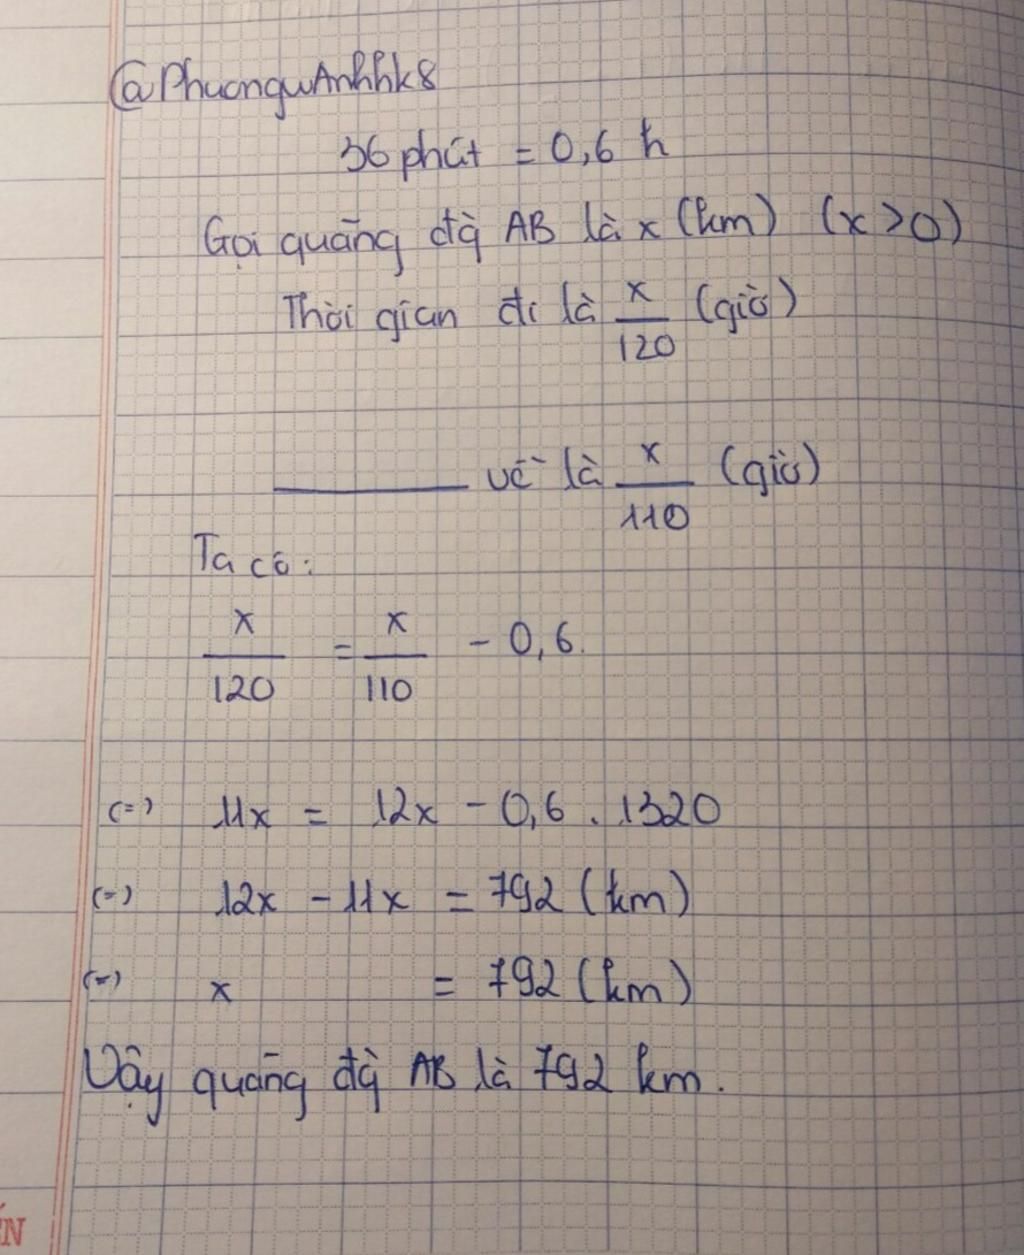 @PhuongwAnhhk8
36 phút = 0,6 h
Gọi quãng đg̀ AB là x (km) (x > 0)
Thời gian đi là x/120 (giờ)
_______ về là x/110 (giờ)
Ta có:
x/120 = x/110 - 0,6.
(=) 11x = 12x - 0,6 . 1320
(=) 12x - 11x = 792 (km)
(=) x = 792 (km)
Vậy quãng đg̀ AB là 792 km.
ẾN